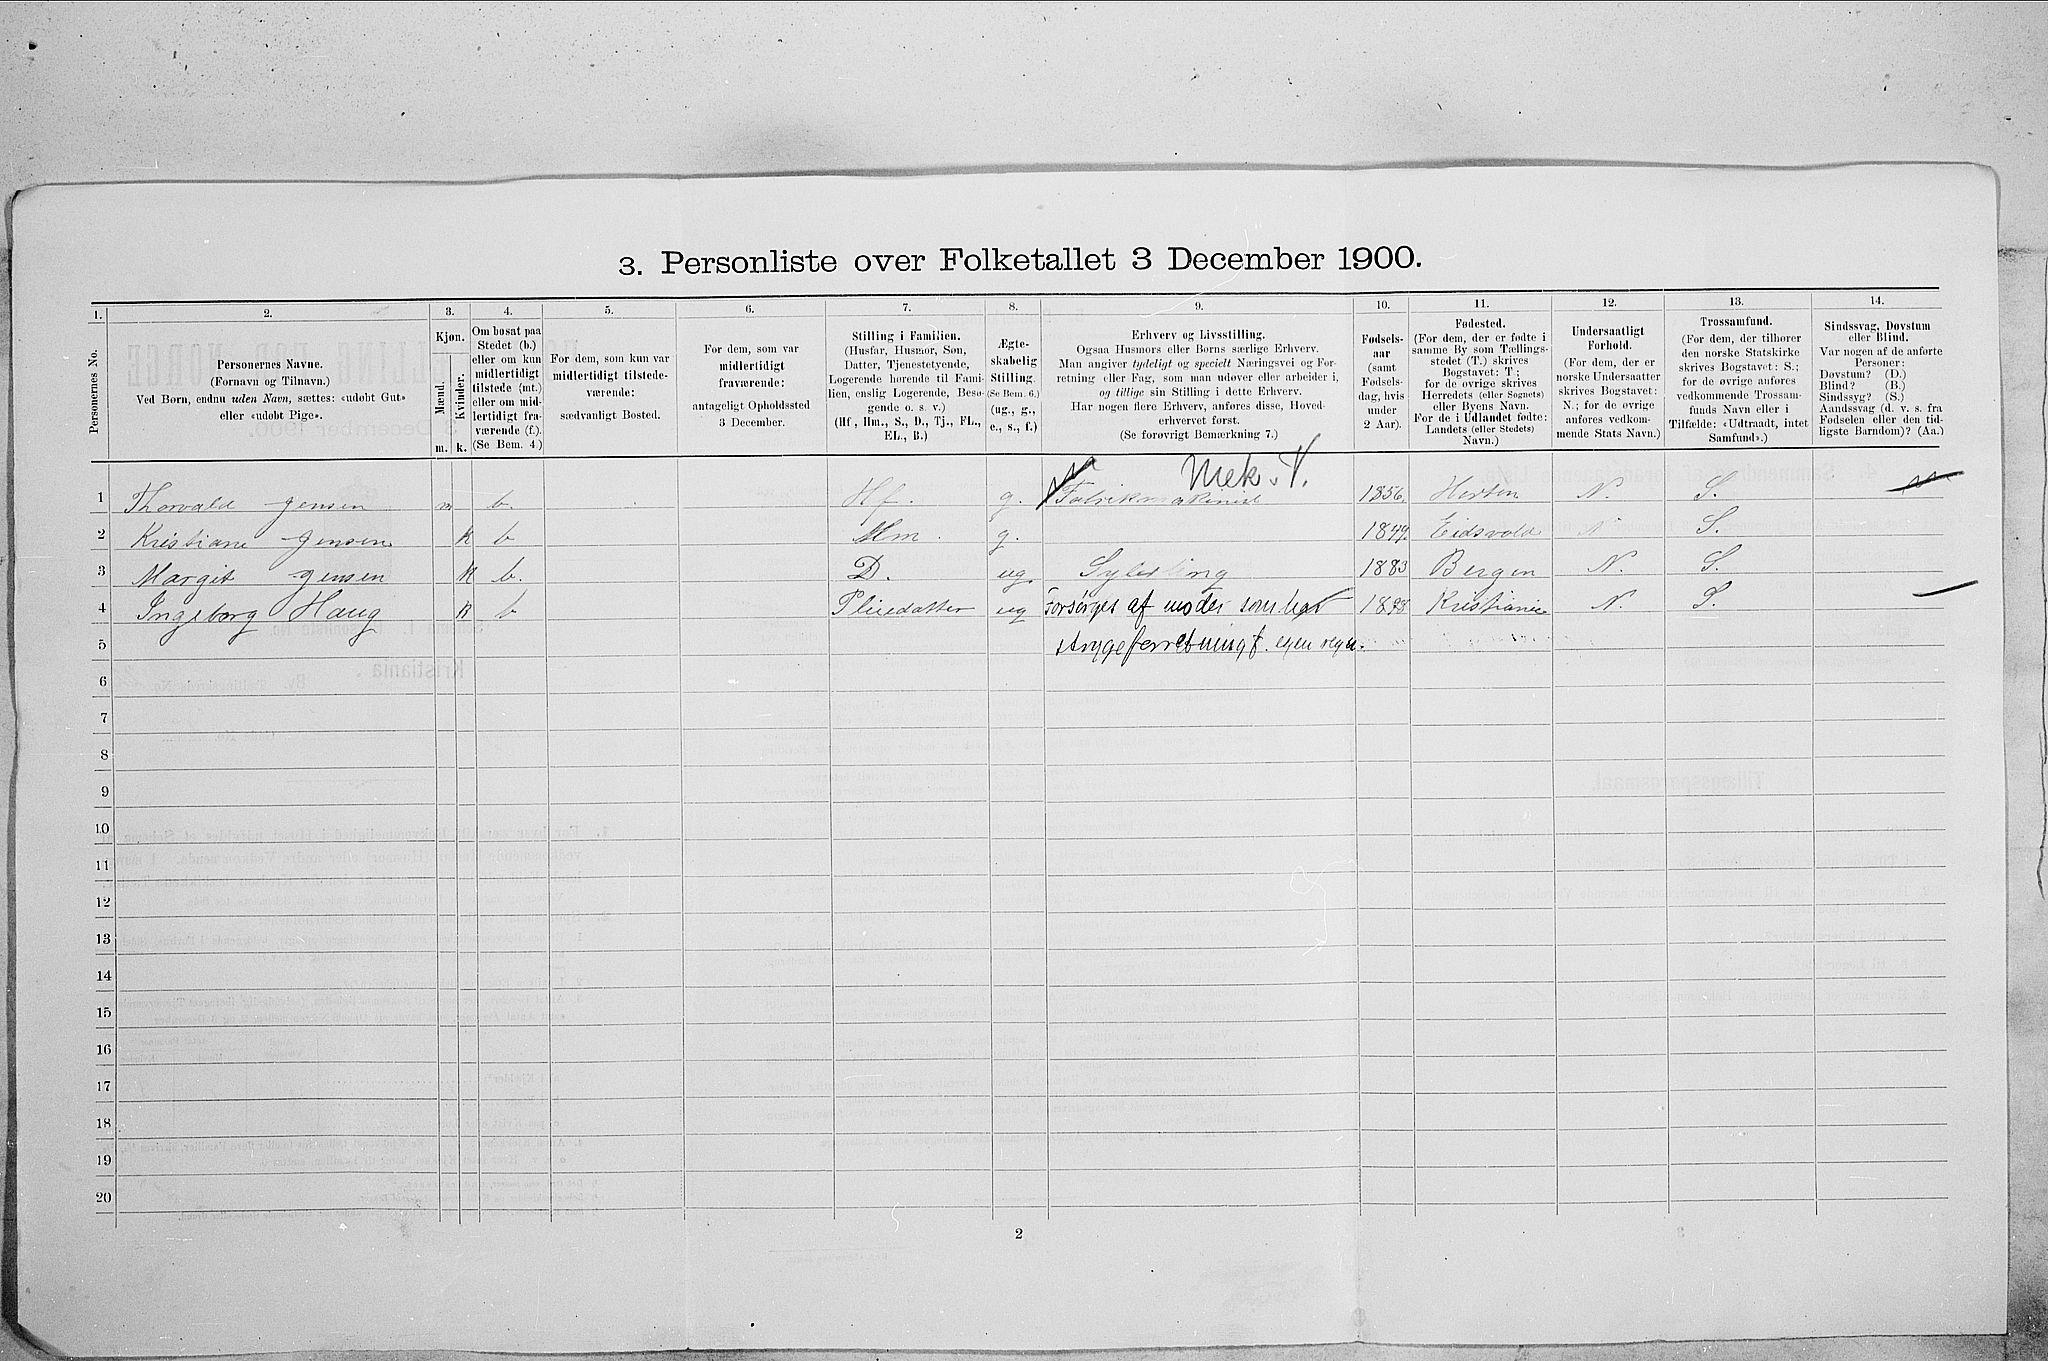 3. Personliste over Folketallet 3 December 1900.
1. 2. 3. 4. 5. 6. 7. 8. 9. 10. 11. 12. 13. 14.
Personernes No.
Personernes Navne.
(Fornavn og Tilnavn.)
Ved Børn, endnu uden Navn, sættes: «udøbt Gut»
eller «udøbt Pige».
Kjøn.
Mænd.
Kvinder.
m. k.
Om bosat paa
Stedet (b.)
eller om kun
midlertidigt
tilstede (mt.)
eller om mid-
lertidigt fra-
værende (f.).
(Se Bem. 4.)
For dem, som kun var
midlertidigt tilstede-
værende:
sædvanligt Bosted.
For dem, som var
midlertidigt
fraværende:
antageligt Opholdssted
3 December.
Stilling i Familien.
(Husfar, Husmor, Søn,
Datter, Tjenestetyende,
Logerende hørende til Fami-
lien, enslig Logerende, Besø-
gende o. s. v.)
(Hf., Hm., S., D., Tj., FL.,
EL., B.)
Ægte-
skabelig
Stilling.
(Se Bem. 6.)
(ug., g.,
e., s., f.)
Erhverv og Livsstilling.
Ogsaa Husmors eller Børns særlige Erhverv.
Man angiver tydeligt og specielt Næringsvei og For-
retning eller Fag, som man udøver eller arbeider i,
og tillige sin Stilling i dette Erhverv.
Har nogen flere Erhverv, anføres disse, Hoved-
erhvervet først.
(Se forøvrigt Bemærkning 7.)
Fødsels-
aar
(samt
Fødsels-
dag, hvis
under
2 Aar).
Fødested.
(For dem, der er fødte i
samme By som Tællings-
stedet (T.) skrives
Bogstavet: T.;
for de øvrige skrives
Herredets (eller Sognets)
eller Byens Navn.
For de i Udlandet fødte:
Landets (eller Stedets)
Navn.)
Undersaatligt
Forhold.
(For dem, der er
norske Undersaatter
skrives Bogstavet:
N.; for de øvrige
anføres vedkom-
mende Stats Navn.)
Trossamfund.
(For dem, der tilhører
den norske Statskirke
skrives Bogstavet: S.;
for de øvrige anføres
vedkommende Trossam-
funds Navn eller i
Tilfælde: «Udtraadt, intet
Samfund».)
Sindssvag, Døvstum
eller Blind.
Var nogen af de anførte
Personer:
Døvstum? (D.)
Blind? (B.)
Sindssyg? (S.)
Aandssvag (d. v. s. fra
Fødselen eller den tid-
ligste Barndom)? (Aa.)
Mek. V.
1 Thorvald Jensen m b. Hf. g. Fabrikmaskinist 1856. Horten N. S.
2 Kristiane Jensen k b Hm. g. Eidsvold N S.
3 Margit Jensen k b. D. ug. 1883 Bergen N. S.
4 Ingeborg Haug k b Pleiedatter ug Forsørges af moder som har Kristiania N. S.
5 strygeforretning f. egen regn.
6
7
8
9
10
11
12
13
14
15
16
17
18
19
20
2